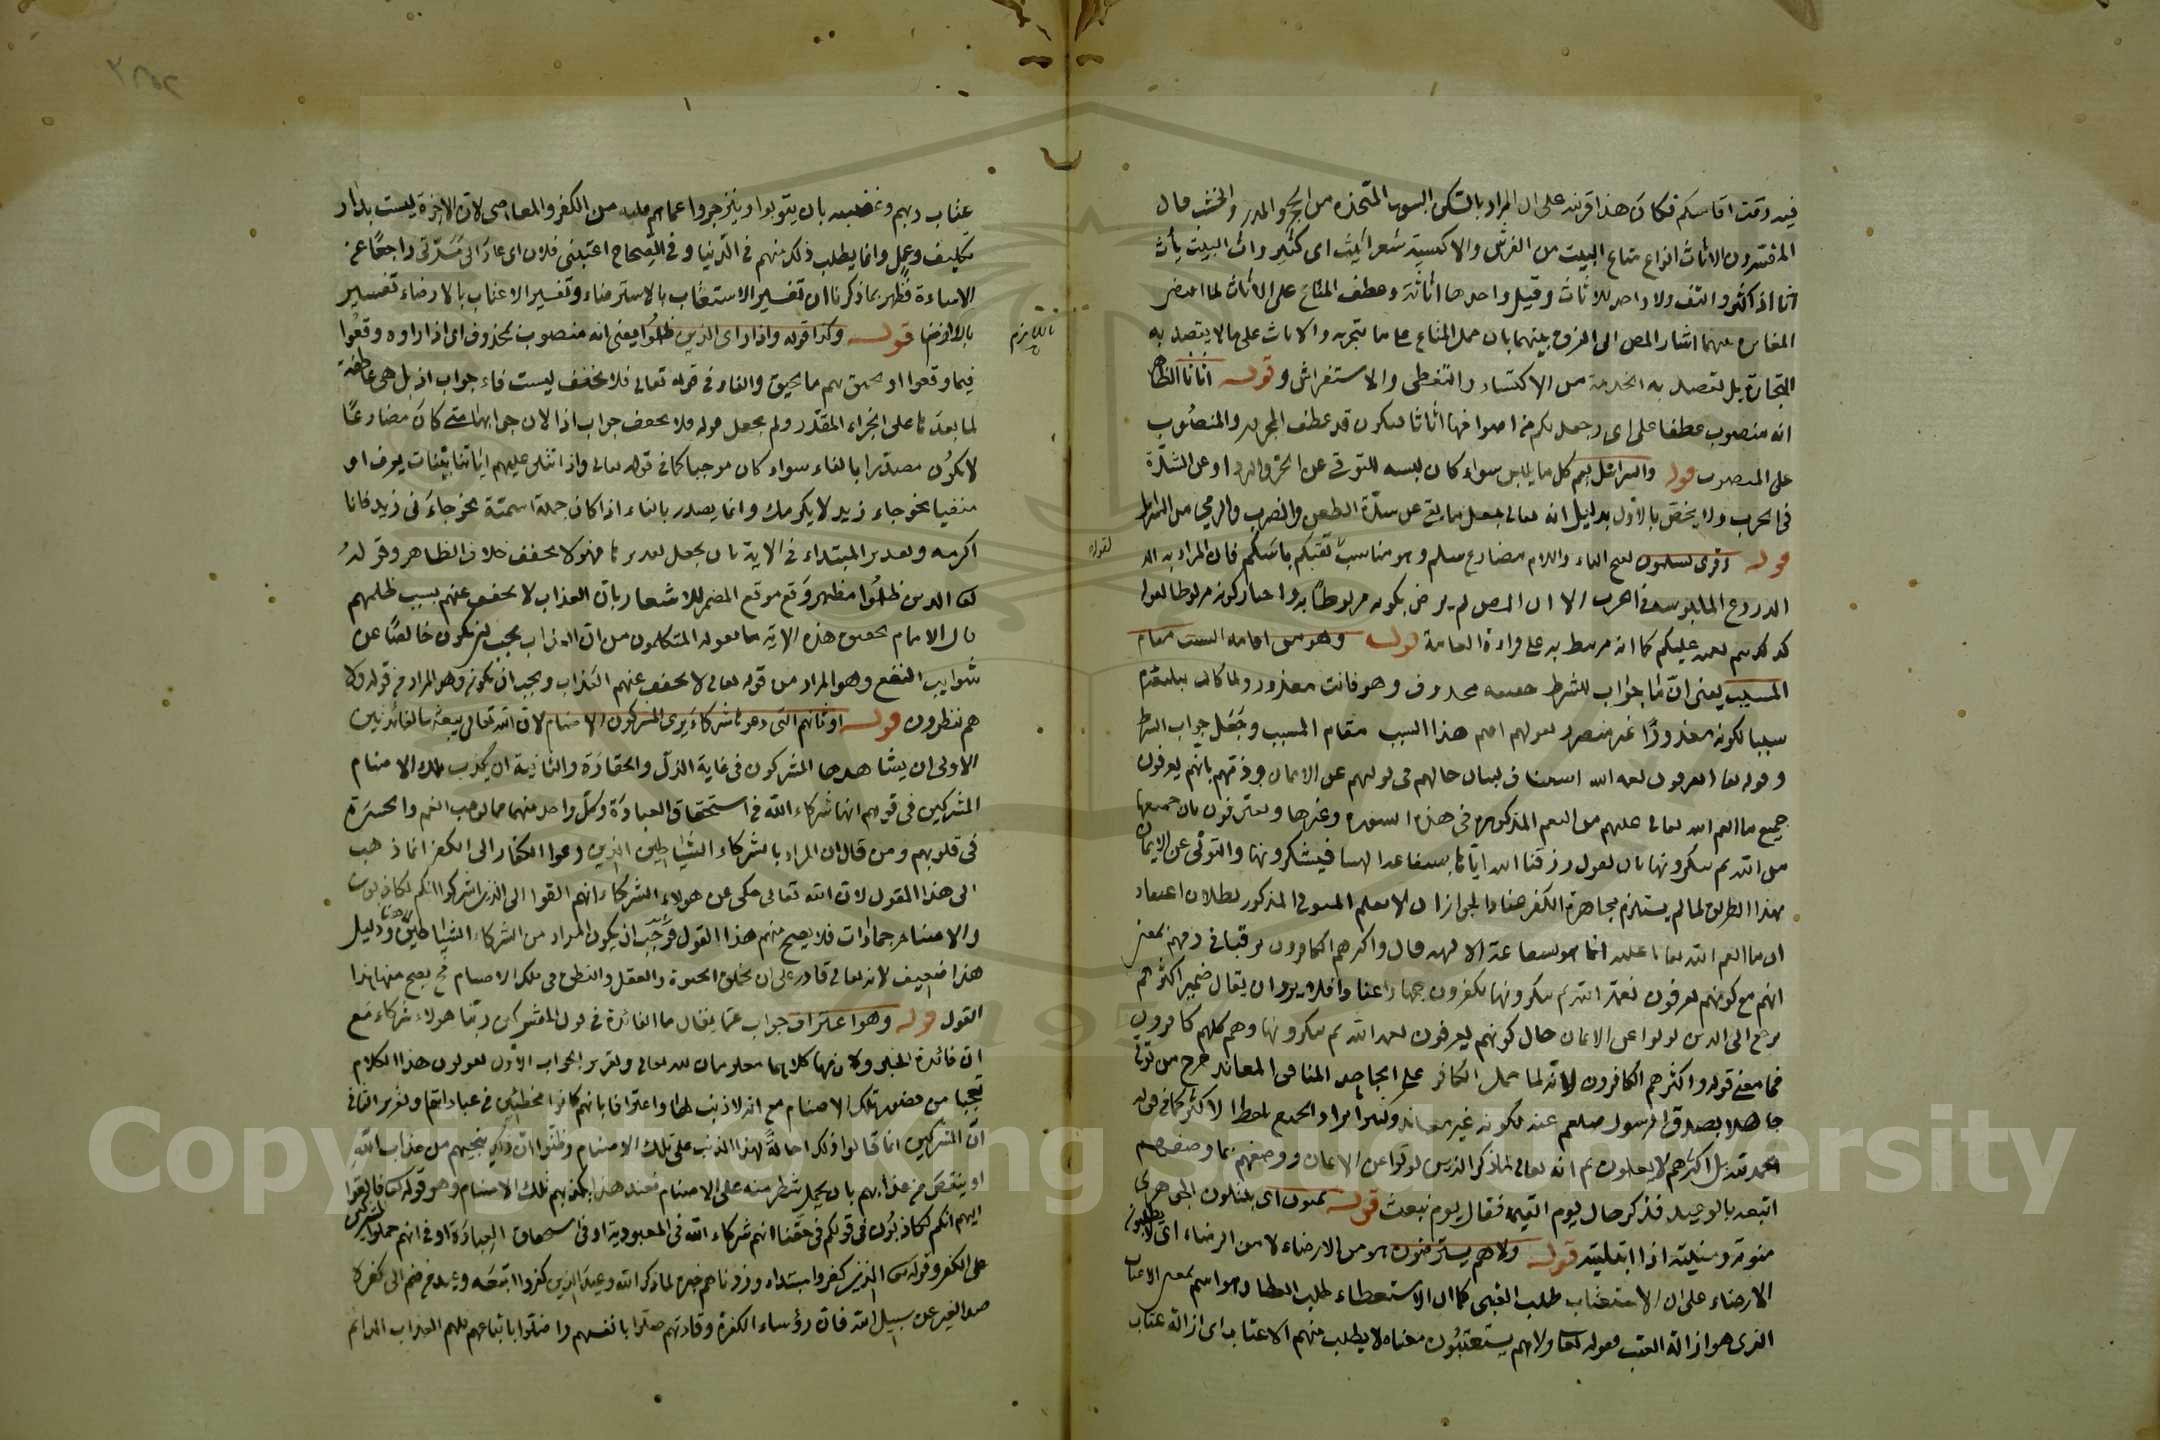 فيه وقت اقامتكم فكان هذا قرينة على ان المراد بالسكن البيوت المتخذة من الحجر والمدر والخشب قال
المفسرون الاثاث انواع متاع البيت من الفرش والاكسية شعر اثيث اى كثير واث البيت يأث
اثا اذا كثر والتف ولا واحد للاثاث وقيل واحدها اثاثة وعطف المتاع على الاثاث لما اقتضى
المغايرة بينهما اشار المص الى الفرق بينهما بان حمل المتاع على ما يتجر به والاثاث على ما لا يقصد به
التجارة بل يقصد به الخدمة من الاكتساء والتغطى والاستفراش و قوله اثاثا الظاهر
انه منصوب عطفا على اى وجعل لكم من اصوافها اثاثا فيكون قد عطف المجرور والمنصوب
على المنصوب قوله والسرابيل يعم كل ما يلبس سواء كان لبسه للتوقى عن الحر والبرد او عن الشدة
فى الحرب ولا يختص بالاول بدليل انه تعالى جعل ما يقى عن شدة الطعن والضرب والرمى من السرابيل
قوله وقرئ تسلمون بفتح التاء واللام مضارع سلم وهو مناسب تقيكم بأسكم فان المراد به
الدروع الملبوسة فى الحرب الا ان المص لم يرض بكونه مربوطا به واختار كونه مربوطا لقوله
كذلك يتم نعمته عليكم كما انه مرتبط به على قراءة العامة قوله وهو من اقامة السبب مقام
المسبب يعنى ان جواب الشرط حقيقة محذوف وهو فانت معذور ولما كان
سببا لكونه معذورا غير مقصر اقيم هذا السبب مقام المسبب وجعل جواب الشرط
وقوله تعالى يعرفون نعمة الله استئناف لبيان حالهم فى توليهم عن الايمان وذمهم بانهم يعرفون
جميع ما انعم الله تعالى عليهم من النعم المذكورة فى هذه السورة وغيرها ويعترفون بان جميعها
من الله ثم ينكرونها بان يقول رزقنا الله اياها بشفاعة الهتنا فيشكرونها والتولى عن الايمان
بهذا الطريق لما لم يستلزم مجاهرة الكفر عنادا لجواز ان لا يعلم المتولى المذكور بطلان اعتقاد
ان ما انعم الله تعالى علينا انما هو بشفاعة الالهة قال واكثرهم الكافرون ترقيا فى ذمهم بمعنى
انهم مع كونهم يعرفون نعمة الله ثم ينكرونها يكفرون جهارا عنادا فلا يرد ان يقال ضمير اكثرهم
يرجع الى الذين تولوا عن الايمان حال كونهم يعرفون نعمة الله ثم ينكرونها وهم كلهم كافرون
فما معنى قوله واكثرهم الكافرون لانه لما حمل الكافر على الجاحد المنافى المعاند خرج من تولى
جاهلا بصدق الرسول صلعم عنه لكونه غير معاند
الحمد لله بل اكثرهم لا يعلمون ثم انه تعالى لما ذكر الذين تولوا عن الايمان ووصفهم بما وصفهم
اتبعه بالوعيد فذكر حال يوم القيمة فقال ويوم نبعث قوله يمنون اى يبتلون الجوهرى
منوته ومنيته اذا ابتليته قوله ولا هم يسترضون هو من الارضاء لا من الرضاء اى لا يطلبون
الارضاء على ان الاستعتاب طلب العتبى كما ان الاستعطاء طلب العطا وهو اسم بمعنى الاعتاب
الذى هو ازالة العتب فقوله تعالى ولا هم يستعتبون معناه لا يطلب منهم الاعتاب اى ازالة عتاب
لقوله
عتاب ربهم وغضبه بان يتوبوا وينزجروا عما هم عليه من الكفر والمعاصى لان الاخرة ليست بدار
تكليف وعمل وانما يطلب ذلك منهم فى الدنيا وفى الصحاح اعتبنى فلان اى عاد الى مسرتى راجعا عن
الاساءة فظهر بما ذكرنا ان تفسير الاستعتاب بالاسترضاء وتفسير الاعتاب بالارضاء تفسير
باللازم ايضا قوله وكذا قوله واذا رأى الذين ظلموا يعنى انه منصوب بمحذوف اى اذا رأوه وقعوا
فيما وقعوا او يحيق بهم ما يحيق والفاء فى قوله تعالى فلا يخفف ليست فاء جواب اذ بل هى عاطفة
لما بعدها على الجزاء المقدر ولم يجعل قوله فلا يخفف جواب اذا لان جوابها متى كان مضارعا
لا يكون مصدرا بالفاء سواء كان موجبا كما فى قوله تعالى واذا تتلى عليهم اياتنا بينات يعرف او
منفيا نحو جاء زيد لا يكرمك وانما يصدر بالفاء اذا كان جملة اسمية نحو جاء فى زيد فانا
اكرمه وتقدير المبتداء فى الاية بان يجعل تقديرها فهو لا يخفف خلاف الظاهر وقوله
تعالى الذين ظلموا مظهر وقع موقع المضمر للاشعار بان العذاب لا يخفف عنهم بسبب ظلمهم
قال الامام تحقيق هذه الاية ما يقوله المتكلمون من ان العذاب يجب ان يكون خالصا عن
شوايب النفع وهو المراد من قوله تعالى لا يخفف عنهم العذاب ويجب ان يكون وهو المراد من قوله ولا
هم ينظرون قوله اوثانهم التى دعوها شركاء يرى المشركون الاصنام لان الله تعالى يبعثها لفائدتين
الاولى ان يشاهدها المشركون فى غاية الذل والحقارة والثانية ان يكذب تلك الاصنام
المشركين فى قولهم انها شركاء الله فى استحقاق العبادة وكل واحد منهما مما يوجب الغم والحسرة
فى قلوبهم ومن قال ان المراد بالشركاء الشياطين الذين دعوا الكفار الى الكفر انما ذهب
الى هذا القول لان الله تعالى حكى عن هؤلاء الشركاء انهم القوا الى الذين اشركوا انكم لكاذبون
والاصنام جمادات فلا يصح منهم هذا القول فوجب ان يكون المراد من الشركاء الشياطين ودليل
هذا ضعيف لانه تعالى قادر على ان يخلق الحيوة والعقل والنطق فى تلك الاصنام فح يصح منها هذا
القول قوله وهو اعتراف جواب عما يقال ما الفائدة فى قول المشركين ربنا هؤلاء شركاؤنا مع
ان فائدة الخبر ولازمها كلاهما معلومان لله تعالى وتقرير الجواب الاول يقولون هذا الكلام
تعجبا من حضور تلك الاصنام مع انه لا ذنب لها واعترافا بانهم كانوا مخطئين فى عبادتها وتقرير الثانى
ان المشركين انما قالوا ذلك احالة لهذا الذنب على تلك الاصنام وظنوا ان ذلك ينجيهم من عذاب الله
او ينقص من عذابهم بان يحمل شطر منه على الاصنام فعند هذا يكذبهم تلك الاصنام وهو قوله تعالى فالقوا
اليهم انكم لكاذبون فى قولكم فى حقنا انهم شركاء الله فى المعبودية او فى استحقاق العبادة او فى انهم حملوا المشركين
على الكفر وقوله تعالى الذين كفروا مبتداء وزدناهم خبره لما ذكر الله وعيد الذين كفروا اتبعه وعيد من ضم الى كفره
صد الغير عن سبيل الله فان رؤساء الكفرة وقادتهم ضلوا بانفسهم واضلوا باتباعهم فلهم العذاب الدائم
Copyright © King Saud University
1957